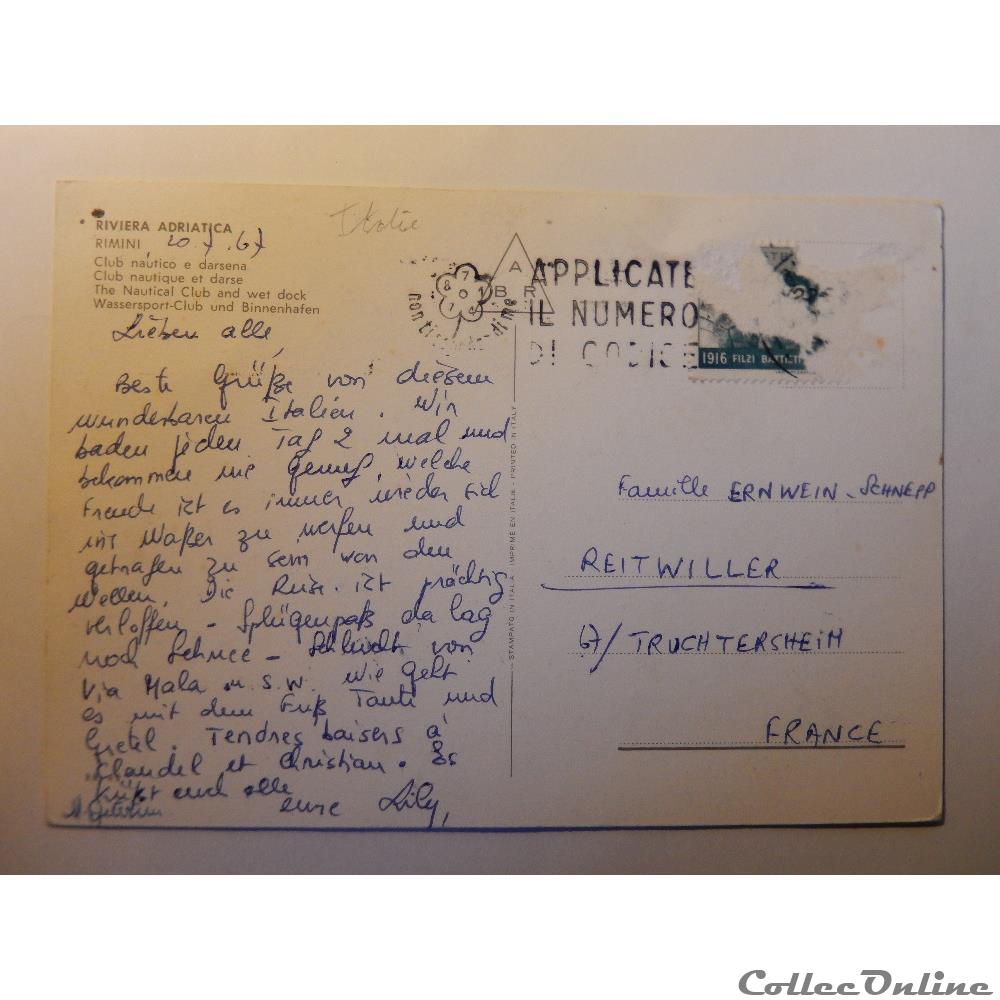 Italie
RIVIERA ADRIATICA
RIMINI 20.7.67
Club náutico e darsena
Club nautique et darse
The Nautical Club and wet dock
Wassersport-Club und Binnenhafen
Lieben alle,
Beste Grüße von diesem
wunderbaren Italien. Wir
baden jeden Tag 2 mal und
bekommen nie genug, welche
Freude ist es immer wieder sich
ins Waßer zu werfen und
getragen zu sein von den
Wellen. Die Reise ist prächtig
verloffen - Splügenpaß da lag
noch Schnee - Schlucht von
Via Mala u.s.w. Wie geht
es mit dem Fuß Tante und
Gretel. Tendres baisers à
Claudel et Christian. Es
küßt euch alle
eure Lily,
A
B R
APPLICATE
IL NUMERO
DI CODICE
1916 FILZI BATTISTI
STAMPATO IN ITALIA - IMPRIME EN ITALIE - PRINTED IN ITALY
Famille ERNWEIN-SCHNEPP
REITWILLER
67/ TRUCHTERSHEIM
FRANCE
CollecOnline